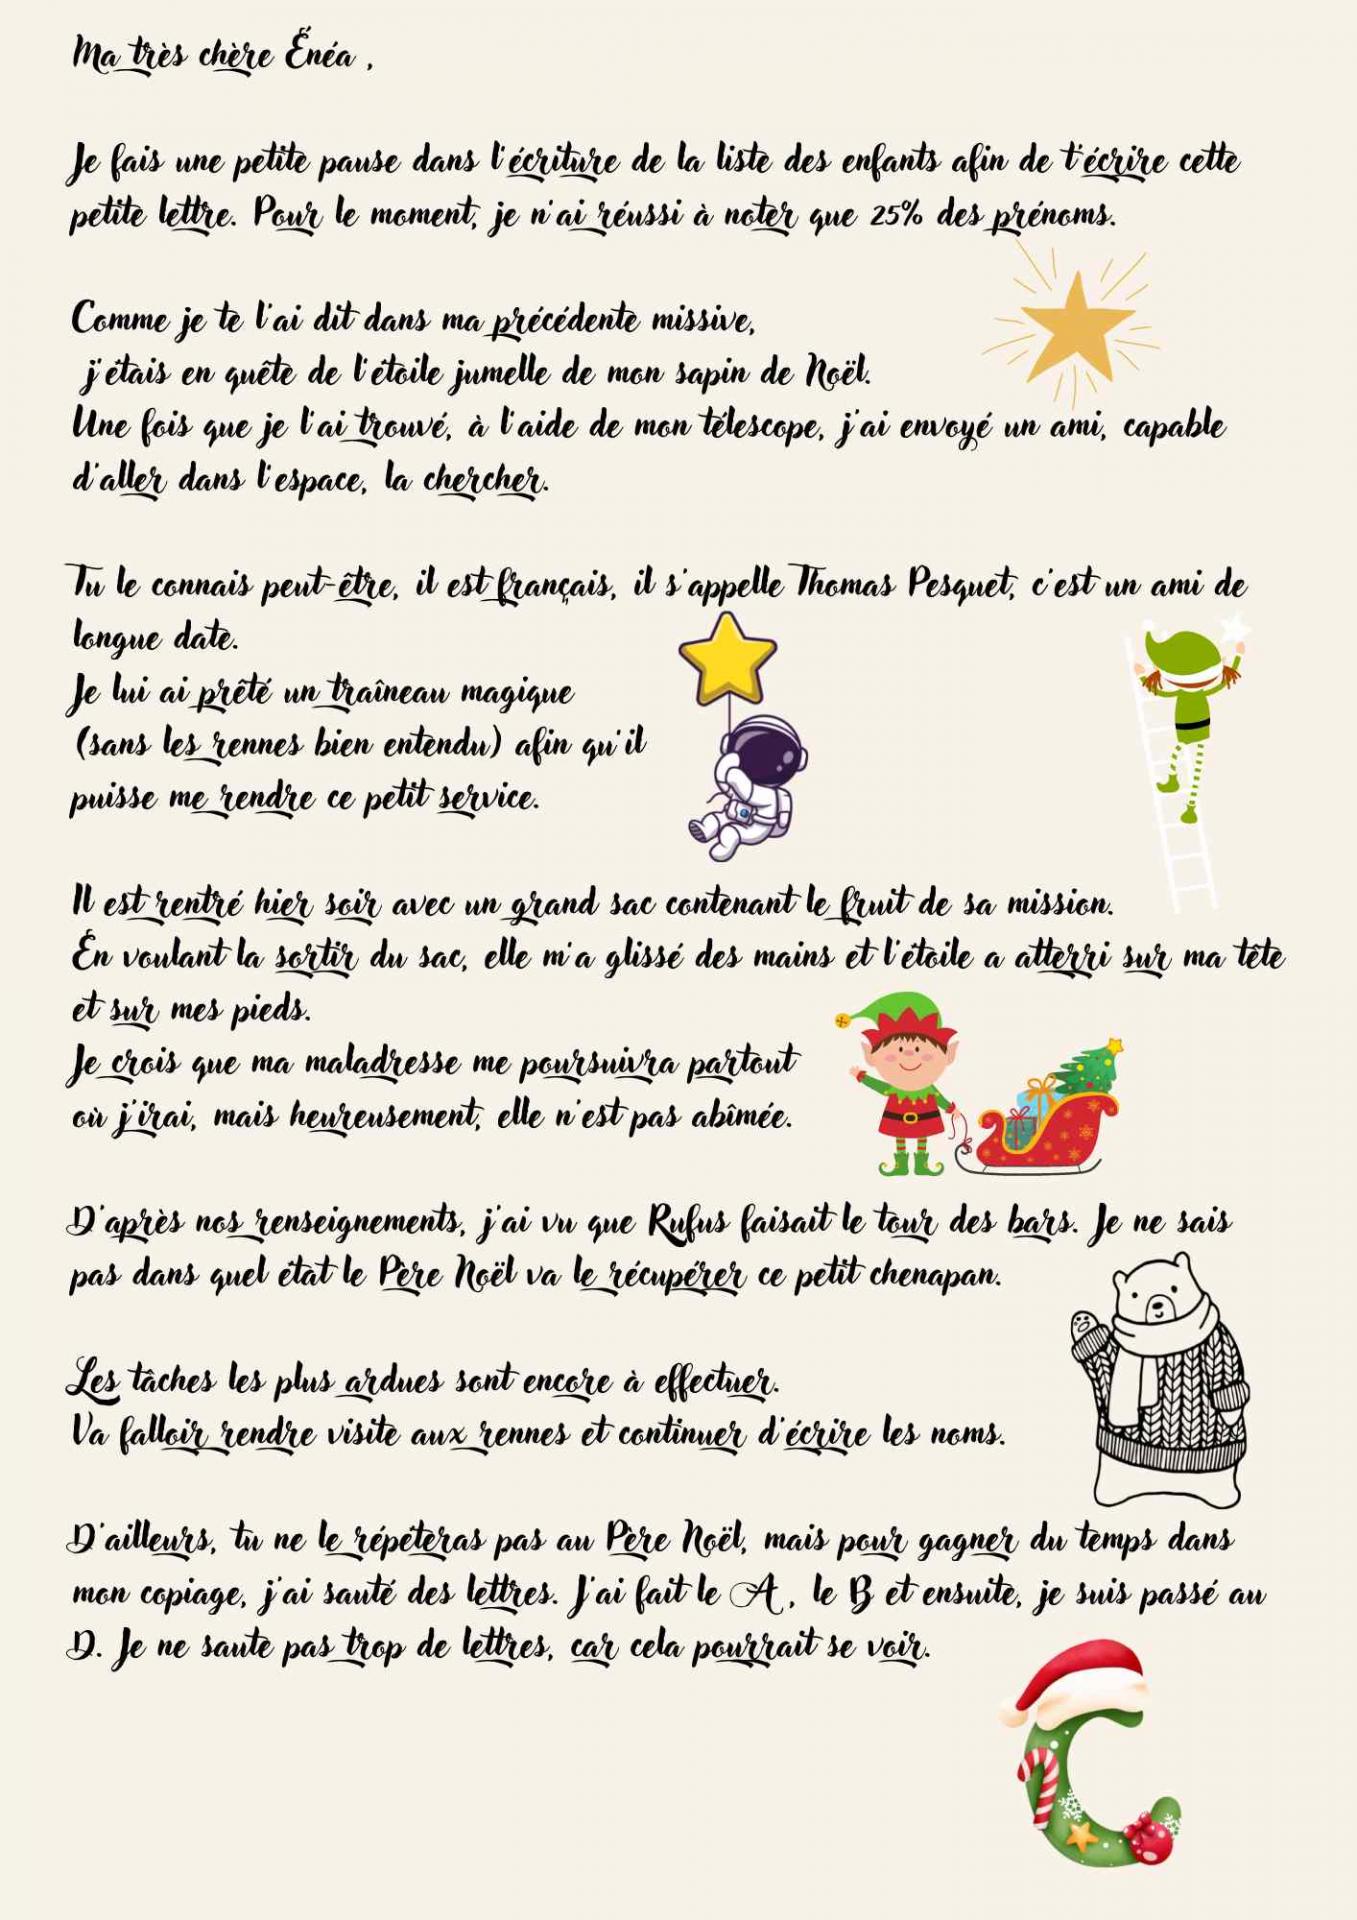 Ma très chère Énéa ,
Je fais une petite pause dans l'écriture de la liste des enfants afin de t'écrire cette
petite lettre. Pour le moment, je n'ai réussi à noter que 25% des prénoms.
Comme je te l'ai dit dans ma précédente missive,
j'étais en quête de l'étoile jumelle de mon sapin de Noël.
Une fois que je l'ai trouvé, à l'aide de mon télescope, j'ai envoyé un ami, capable
d'aller dans l'espace, la chercher.
Tu le connais peut-être, il est français, il s'appelle Thomas Pesquet, c'est un ami de
longue date.
Je lui ai prêté un traîneau magique
(sans les rennes bien entendu) afin qu'il
puisse me rendre ce petit service.
Il est rentré hier soir avec un grand sac contenant le fruit de sa mission.
En voulant la sortir du sac, elle m'a glissé des mains et l'étoile a atterri sur ma tête
et sur mes pieds.
Je crois que ma maladresse me poursuivra partout
où j'irai, mais heureusement, elle n'est pas abîmée.
D'après nos renseignements, j'ai vu que Rufus faisait le tour des bars. Je ne sais
pas dans quel état le Père Noël va le récupérer ce petit chenapan.
Les tâches les plus ardues sont encore à effectuer.
Va falloir rendre visite aux rennes et continuer d'écrire les noms.
D'ailleurs, tu ne le répéteras pas au Père Noël, mais pour gagner du temps dans
mon copiage, j'ai sauté des lettres. J'ai fait le A, le B et ensuite, je suis passé au
D. Je ne saute pas trop de lettres, car cela pourrait se voir.
C